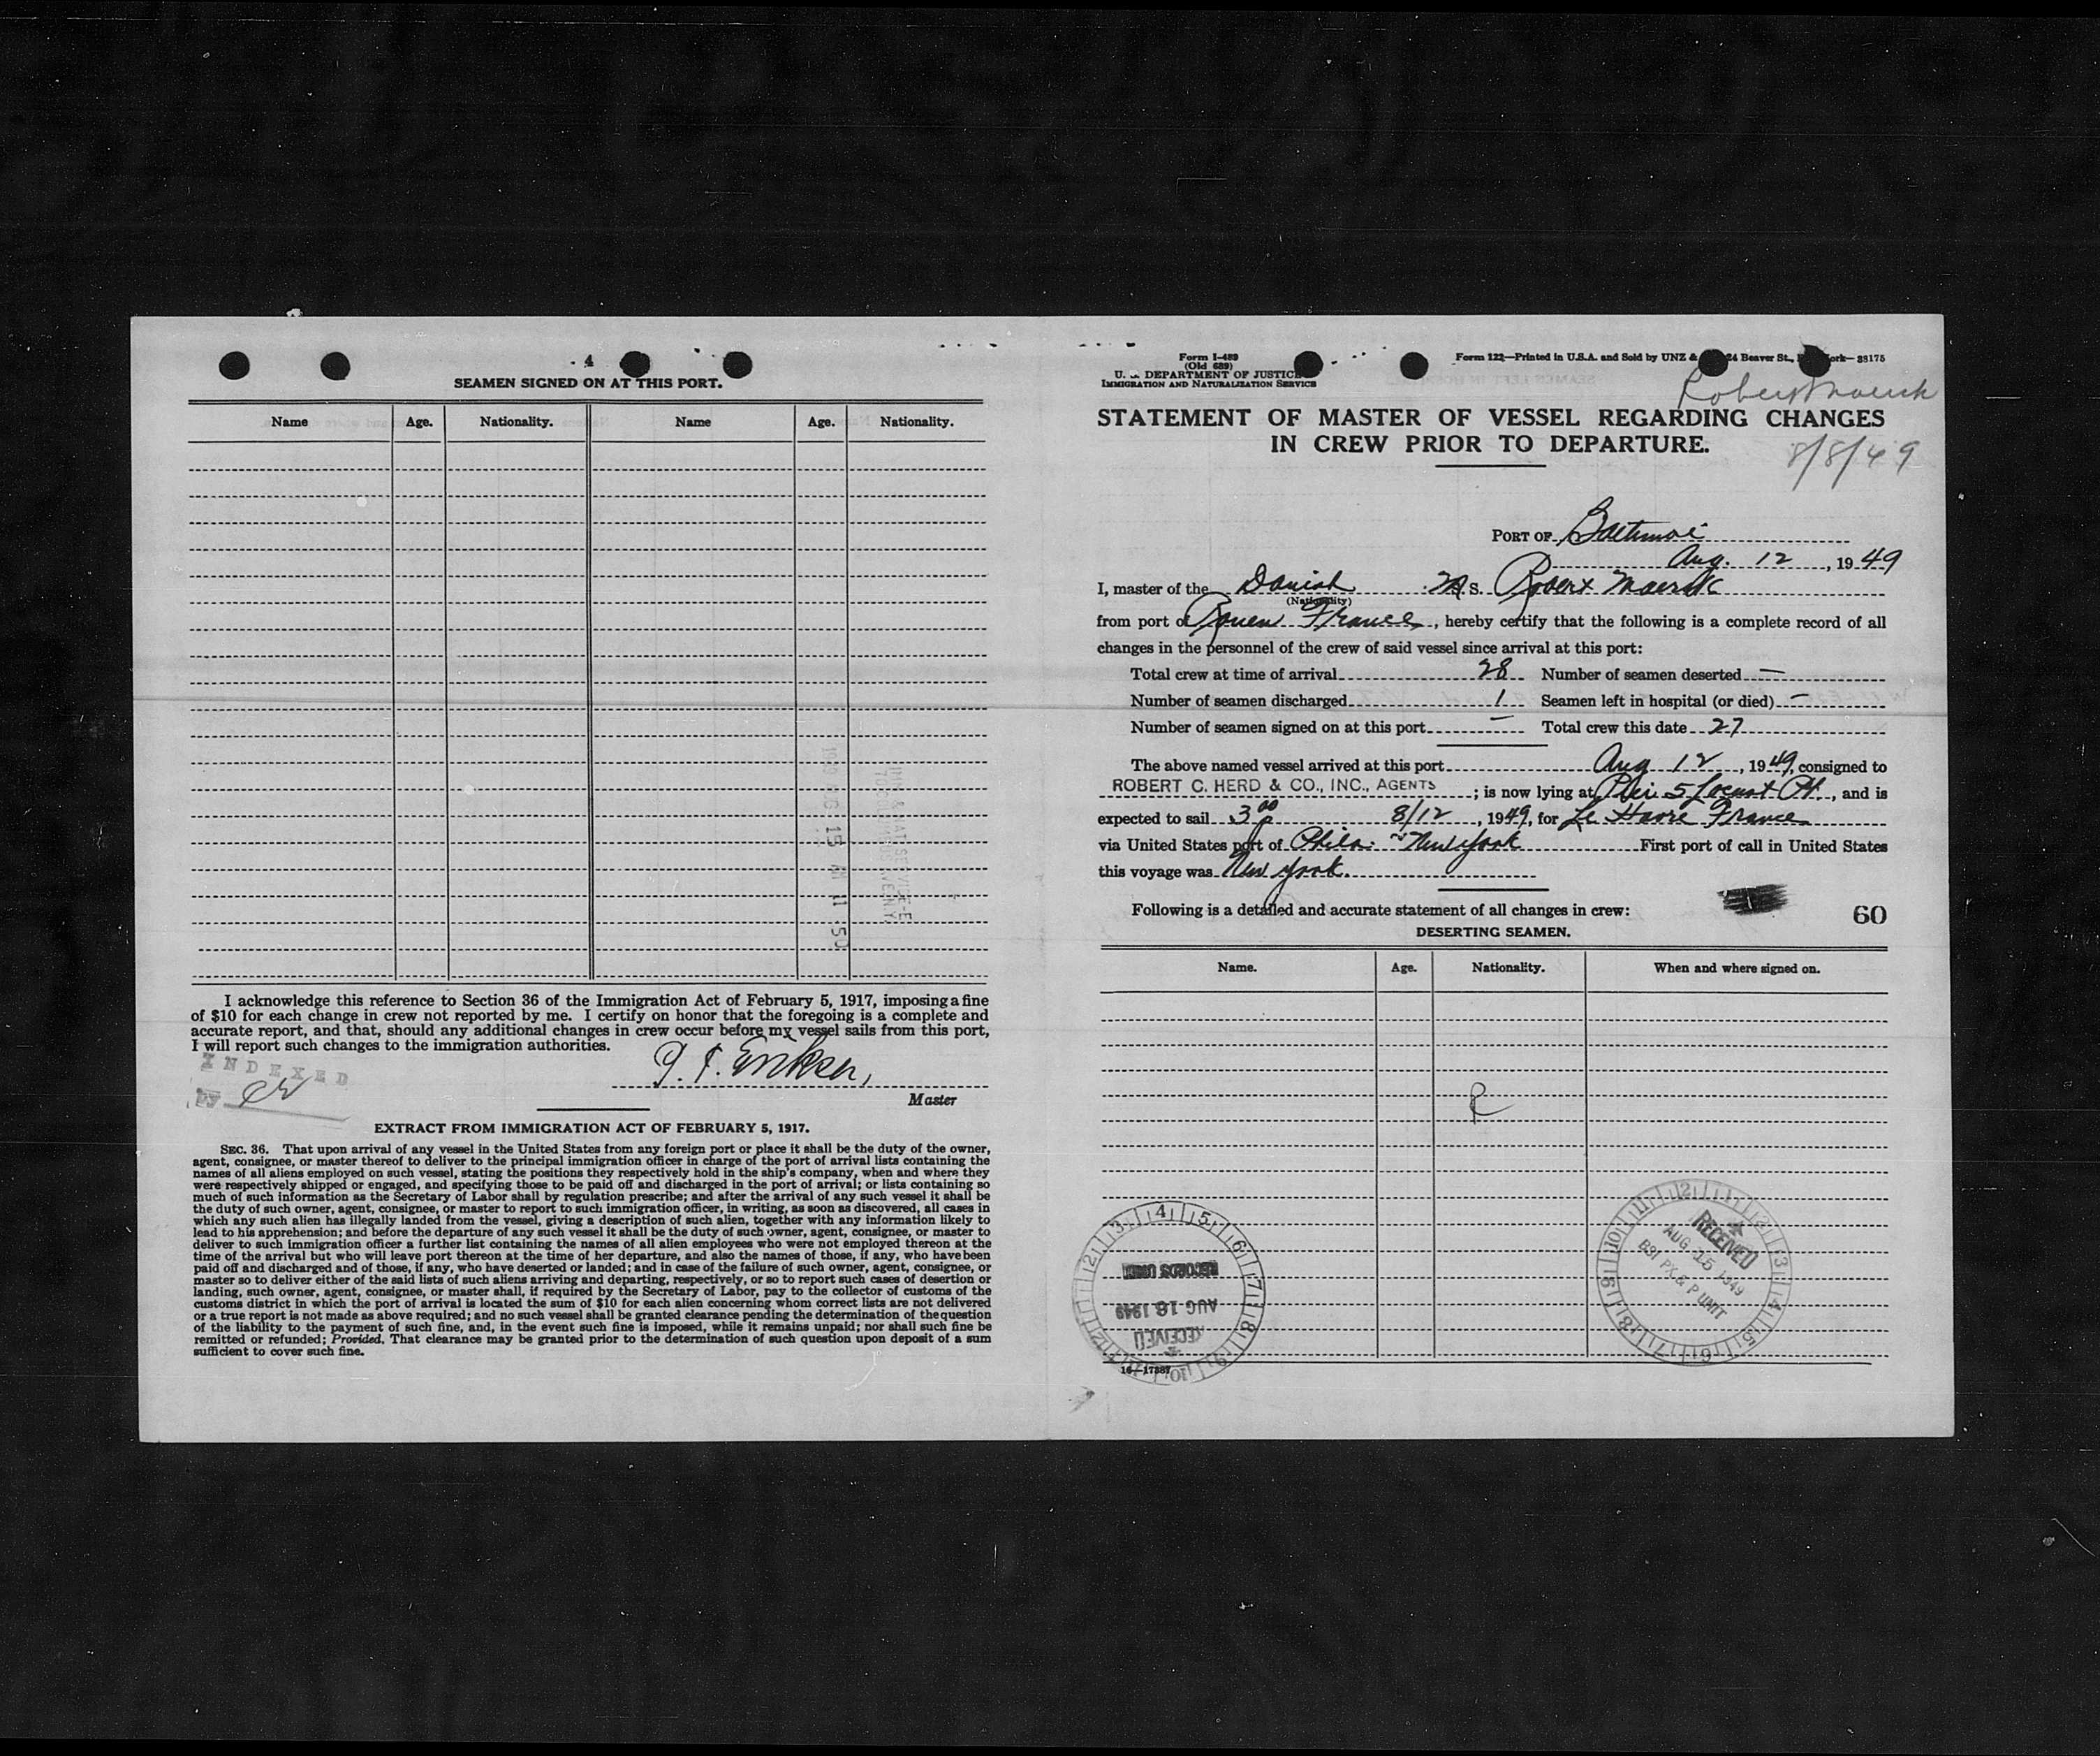 4
SEAMEN SIGNED ON AT THIS PORT.
Name Age. Nationality. Name Age. Nationality.
I acknowledge this reference to Section 36 of the Immigration Act of February 5, 1917, imposing a fine
of $10 for each change in crew not reported by me. I certify on honor that the foregoing is a complete and
accurate report, and that, should any additional changes in crew occur before my vessel sails from this port,
I will report such changes to the immigration authorities.
INDEXED
by
Master
EXTRACT FROM IMMIGRATION ACT OF FEBRUARY 5, 1917.
SEC. 36. That upon arrival of any vessel in the United States from any foreign port or place it shall be the duty of the owner,
agent, consignee, or master thereof to deliver to the principal immigration officer in charge of the port of arrival lists containing the
names of all aliens employed on such vessel, stating the positions they respectively hold in the ship's company, when and where they
were respectively shipped or engaged, and specifying those to be paid off and discharged in the port of arrival; or lists containing so
much of such information as the Secretary of Labor shall by regulation prescribe; and after the arrival of any such vessel it shall be
the duty of such owner, agent, consignee, or master to report to such immigration officer, in writing, as soon as discovered, all cases in
which any such alien has illegally landed from the vessel, giving a description of such alien, together with any information likely to
lead to his apprehension; and before the departure of any such vessel it shall be the duty of such owner, agent, consignee, or master to
deliver to such immigration officer a further list containing the names of all alien employees who were not employed thereon at the
time of the arrival but who will leave port thereon at the time of her departure, and also the names of those, if any, who have been
paid off and discharged and of those, if any, who have deserted or landed; and in case of the failure of such owner, agent, consignee, or
master so to deliver either of the said lists of such aliens arriving and departing, respectively, or so to report such cases of desertion or
landing, such owner, agent, consignee, or master shall, if required by the Secretary of Labor, pay to the collector of customs of the
customs district in which the port of arrival is located the sum of $10 for each alien concerning whom correct lists are not delivered
or a true report is not made as above required; and no such vessel shall be granted clearance pending the determination of the question
of the liability to the payment of such fine, and, in the event such fine is imposed, while it remains unpaid; nor shall such fine be
remitted or refunded; Provided, That clearance may be granted prior to the determination of such question upon deposit of a sum
sufficient to cover such fine.
Form I-489
(Old 689)
U. S. DEPARTMENT OF JUSTICE
IMMIGRATION AND NATURALIZATION SERVICE
Form 122—Printed in U.S.A. and Sold by UNZ & 24 Beaver St., 38175
Robert Maersk
STATEMENT OF MASTER OF VESSEL REGARDING CHANGES
IN CREW PRIOR TO DEPARTURE.
8/8/49
PORT OF Baltimore
Aug. 12, 1949
I, master of the Danish M.S. Robert Maersk
(Nationality)
from port of Rouen France, hereby certify that the following is a complete record of all
changes in the personnel of the crew of said vessel since arrival at this port:
Total crew at time of arrival 28 Number of seamen deserted —
Number of seamen discharged 1 Seamen left in hospital (or died) —
Number of seamen signed on at this port — Total crew this date 27
The above named vessel arrived at this port Aug 12, 1949, consigned to
ROBERT C. HERD & CO., INC., AGENTS; is now lying at Pier 5 Locust Pt., and is
expected to sail 3 00 p 8/12, 1949, for Le Havre France
via United States port of Phila. New York First port of call in United States
this voyage was New York.
Following is a detailed and accurate statement of all changes in crew: 60
DESERTING SEAMEN.
Name. Age. Nationality. When and where signed on.
RECEIVED
AUG 15 1949
BSI PX & P UNIT
RECORDS UNIT
AUG 16 1949
RECEIVED
16—17887